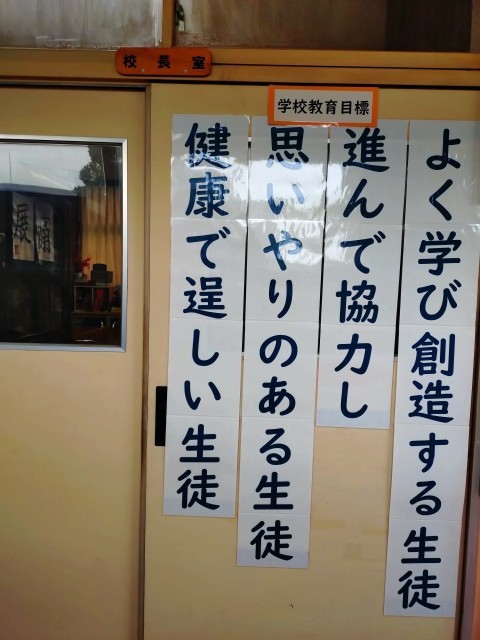 校長室
学校教育目標
よく学び創造する生徒
進んで協力し
思いやりのある生徒
健康で逞しい生徒